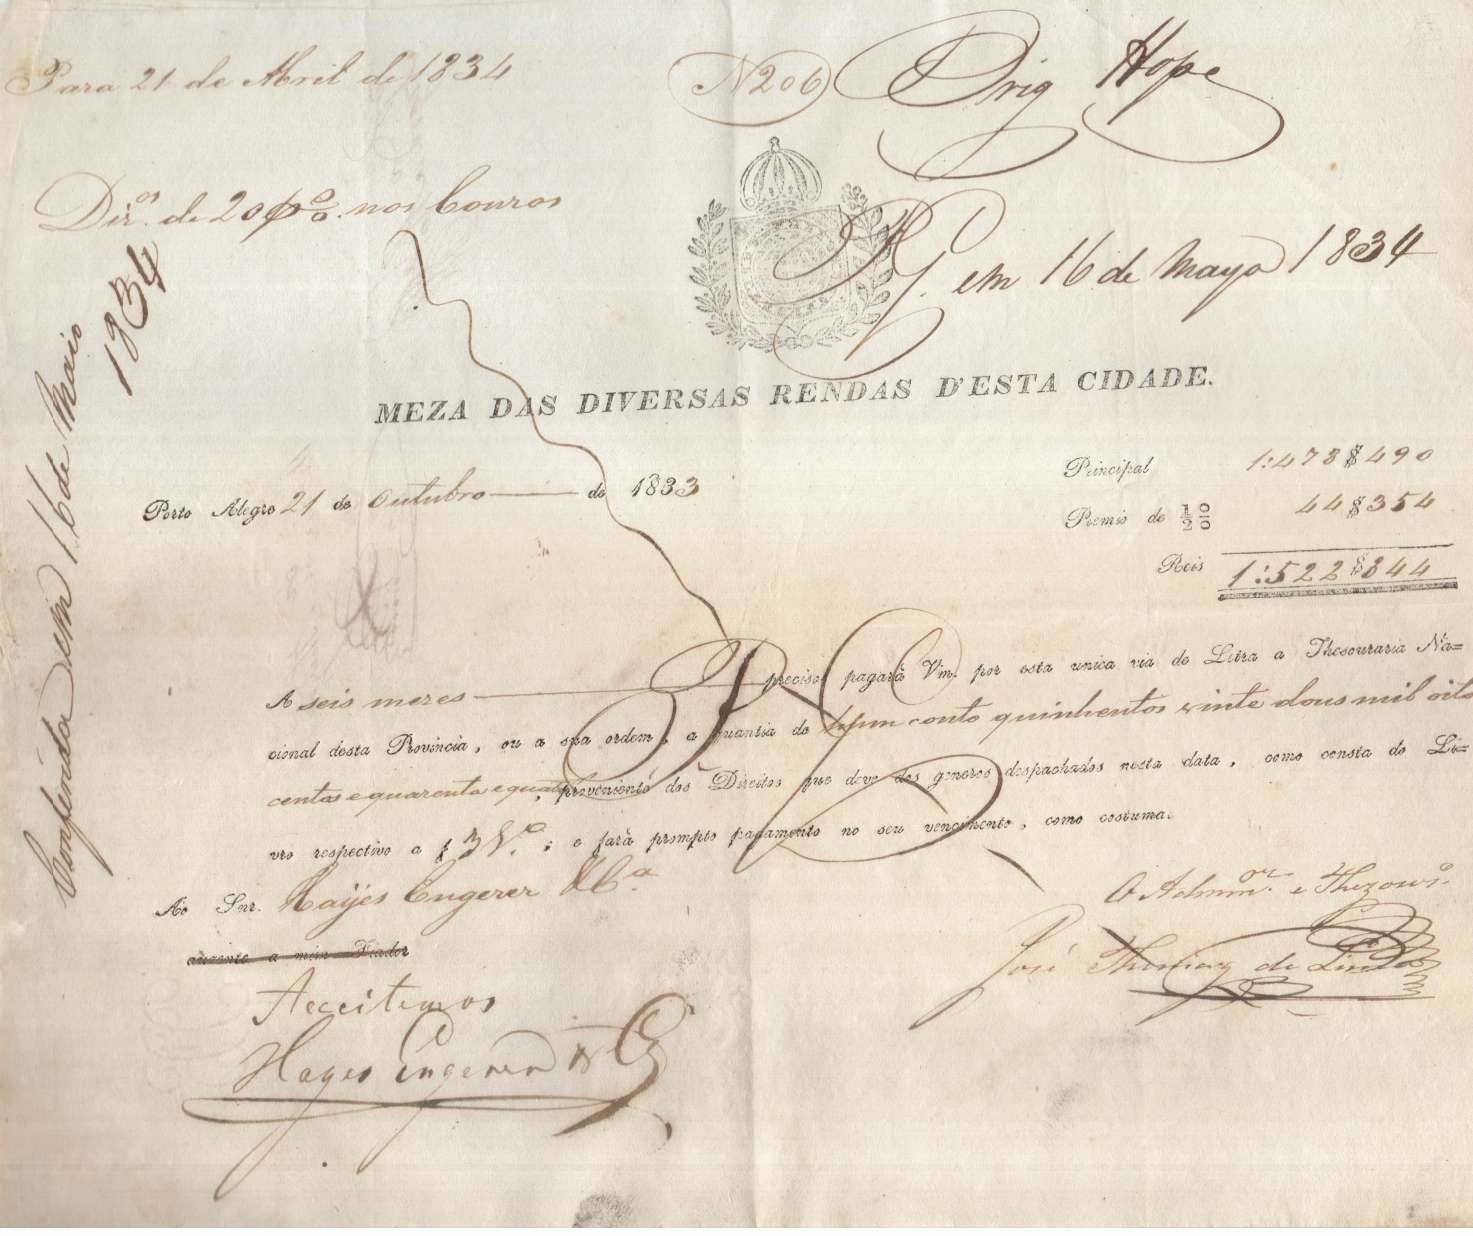 Para 21 de Abril de 1834
N206 Brig Hope
Dir.os de 20 p% nos Couros
Pg. em 16 de Mayo 1834
Conferida em 16 de Maio
1834
MEZA DAS DIVERSAS RENDAS D'ESTA CIDADE.
Porto Alegre 21 de Outubro de 1833
Principal 1:478$490
Premio de 1/2 % 44$354
Reis 1:522$844
A seis mezes preciso pagará Vm. por esta unica via de Letra a Thesouraria Na=
cional desta Provincia, ou a sua ordem, a quantia de hum conto quinhentos vinte dous mil oito
centos e quarenta e quatro, proveniente dos Direitos que deve dos generos despachados nesta data, como consta do Li=
vro respectivo a f 3 V.o; e fará prompto pagamento no seu vencimento, como costuma.
Ao Snr. Hayes Engerer & C.a
auzente a meu Fiador
O Admin.or e Thezour.o
José Thomaz de Lima
Acceitemos
Hayes Engerer & C